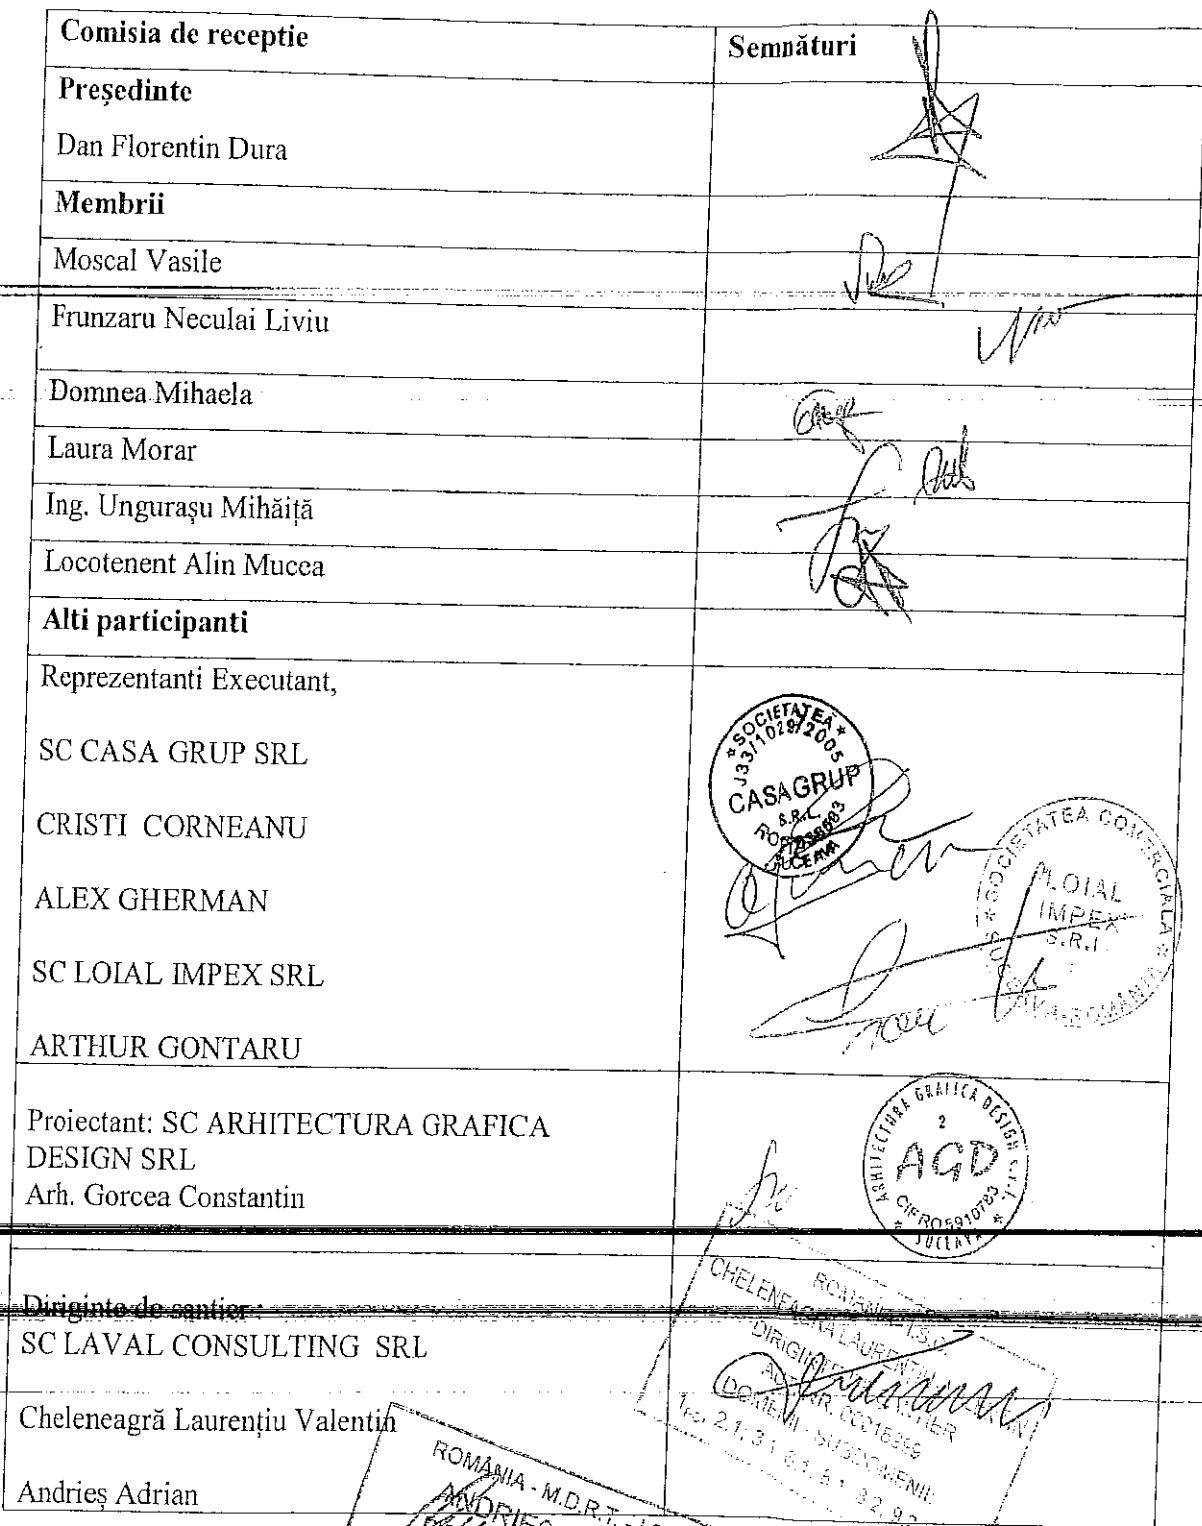 Comisia de receptie
Semnături
Președinte
Dan Florentin Dura
Membrii
Moscal Vasile
Frunzaru Neculai Liviu
Domnea Mihaela
Laura Morar
Ing. Ungurașu Mihăiță
Locotenent Alin Mucea
Alti participanti
Reprezentanti Executant,
SC CASA GRUP SRL
CRISTI CORNEANU
ALEX GHERMAN
SC LOIAL IMPEX SRL
ARTHUR GONTARU
*SOCIETATEA*
J33/1029/2005
CASA GRUP
S.R.L.
SUCEAVA
SOCIETATEA COMERCIALA
LOIAL
IMPEX
S.R.L.
SUCEAVA-ROMÂNIA
Proiectant: SC ARHITECTURA GRAFICA
DESIGN SRL
Arh. Gorcea Constantin
ARHITECTURA GRAFICA DESIGN s.r.l.
2
AGD
CIF RO5910783
* SUCEAVA *
Diriginte de santier :
SC LAVAL CONSULTING SRL
Cheleneagră Laurențiu Valentin
Andrieș Adrian
ROMÂNIA - I.S.C.
CHELENEAGRA LAURENTIU
DIRIGINTE DE SANTIER
AUT. NR.
DOMENII - SUBDOMENII:
ROMÂNIA - M.D.R.T.
ANDRIES